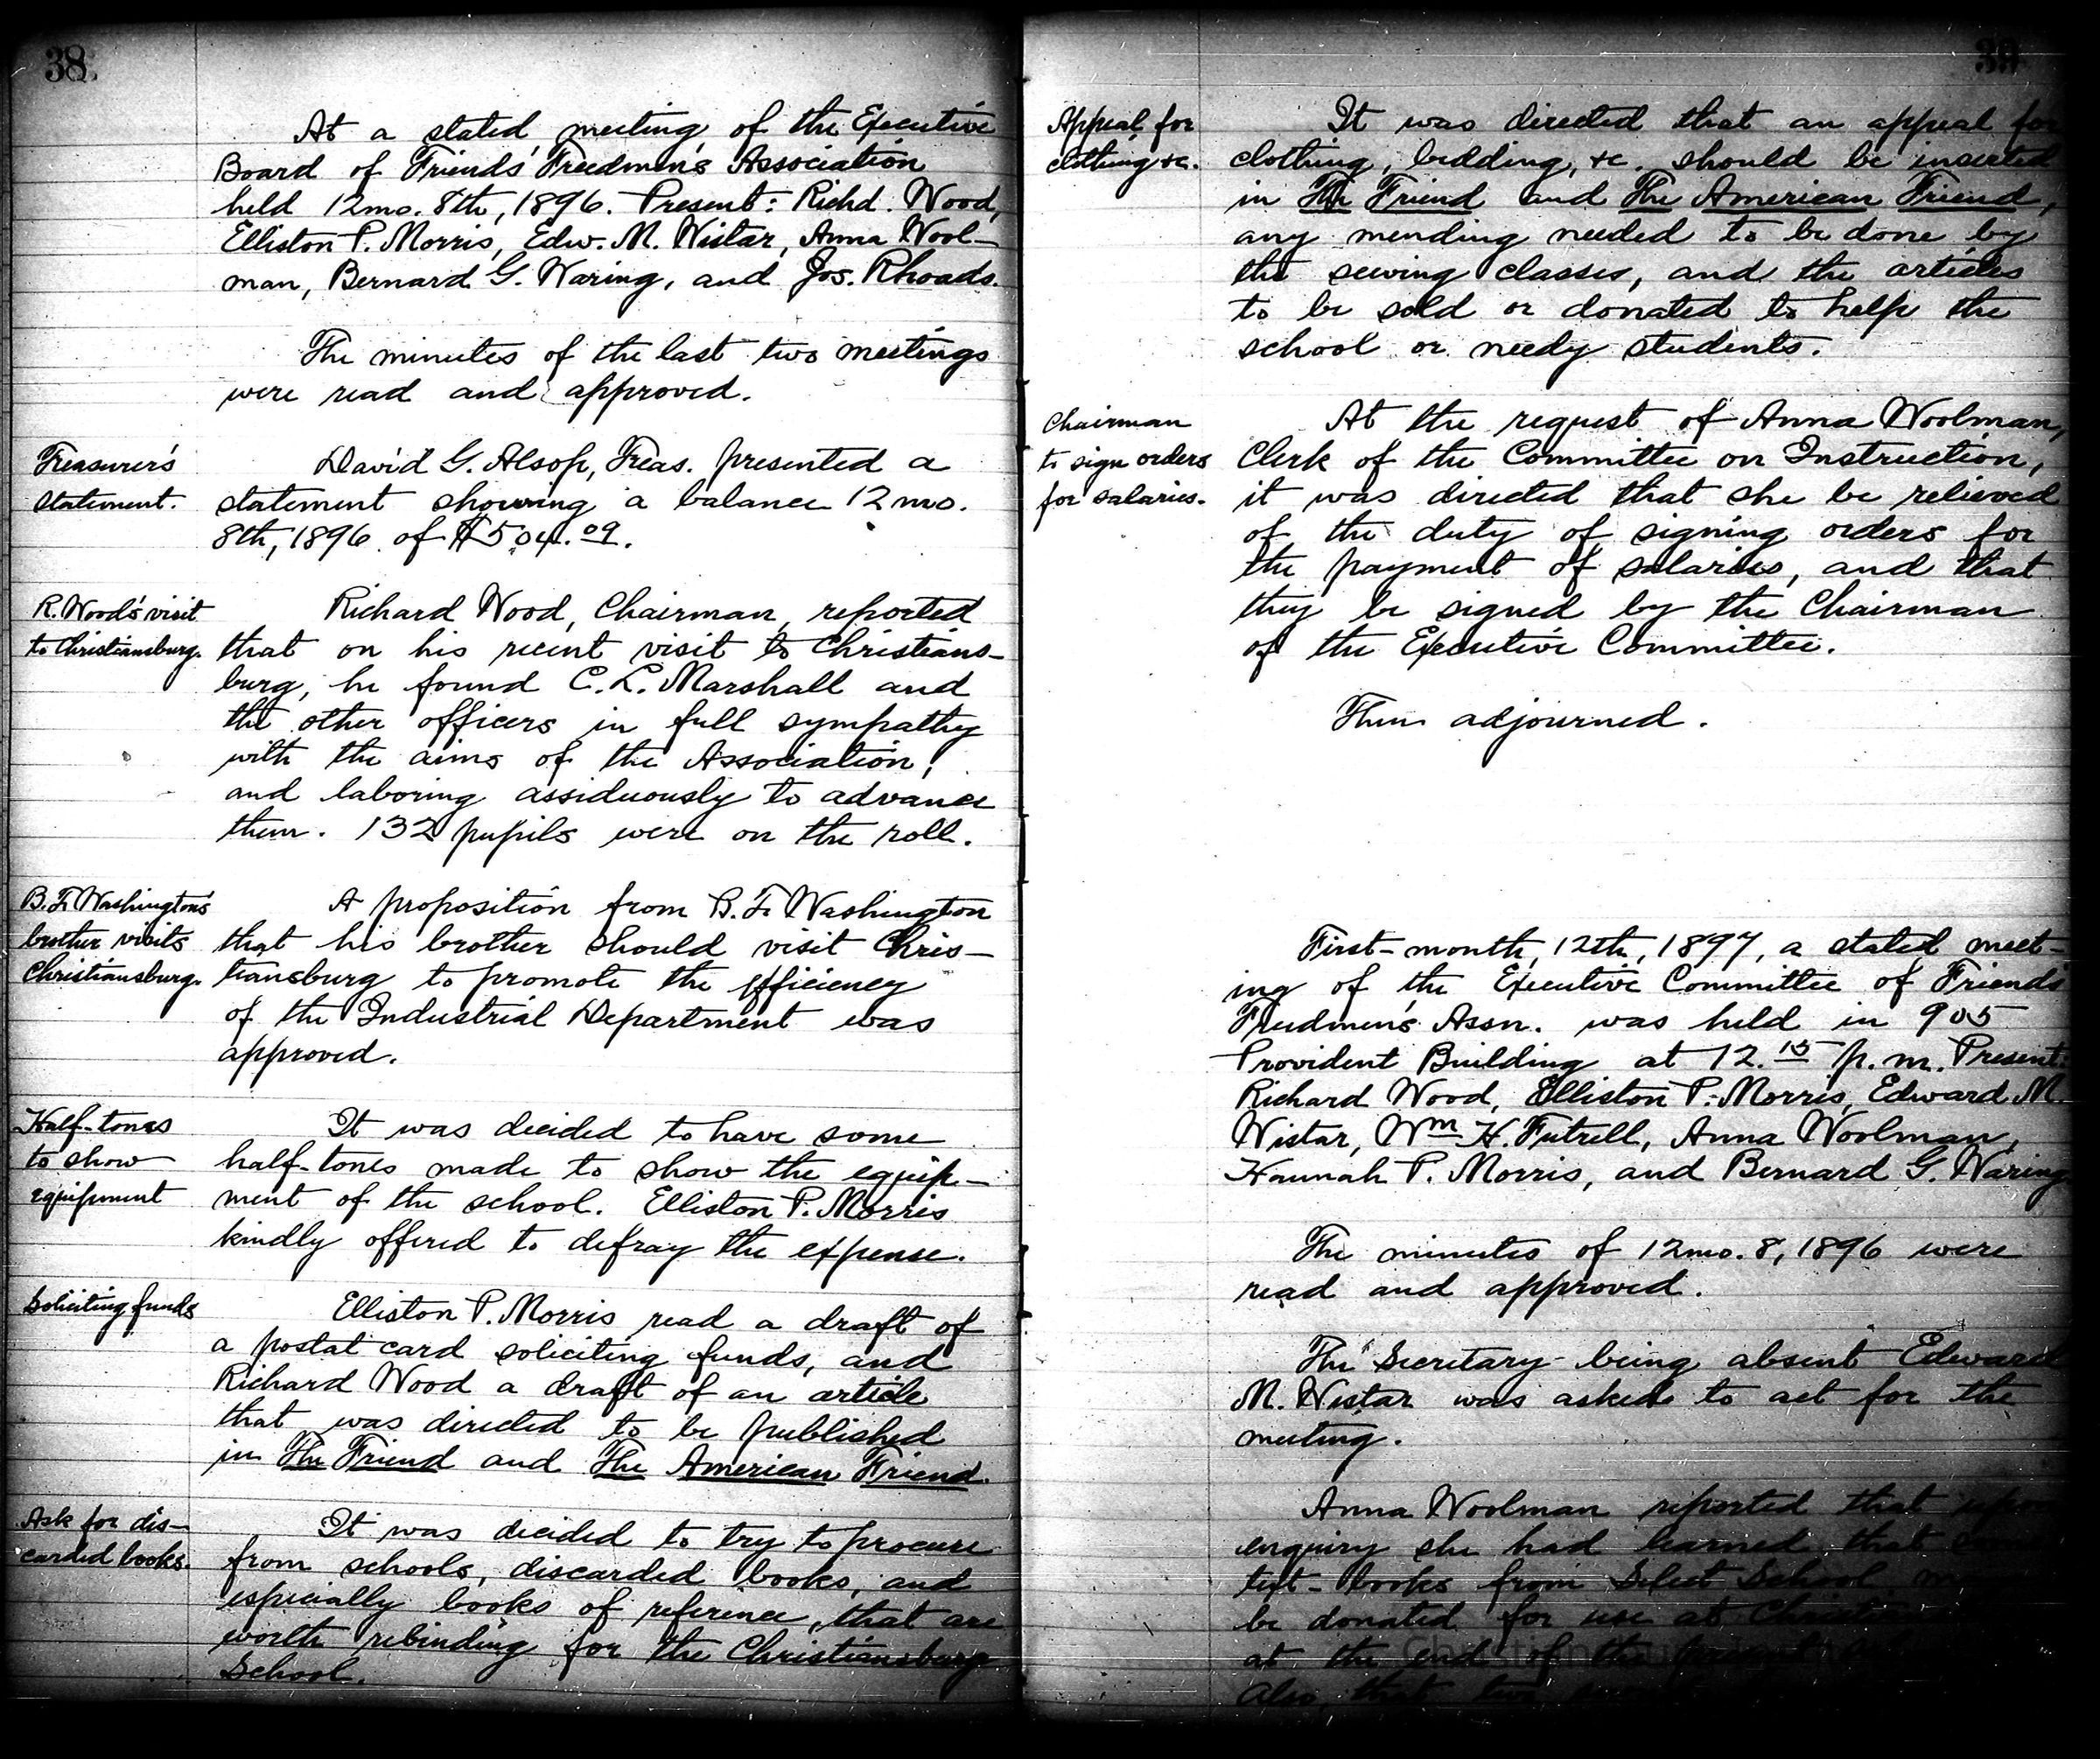 38.
At a stated meeting of the Executive
Board of Friends' Freedmen's Association
held 12mo. 8th, 1896. Present: Richd. Wood,
Elliston P. Morris, Edw. M. Wistar, Anna Wool-
man, Bernard G. Waring, and Jos. Rhoads.
The minutes of the last two meetings
were read and approved.
Treasurer's
statement.
David G. Alsop, Treas. presented a
statement showing a balance 12mo.
8th, 1896 of $504.09.
R. Wood's visit
to Christiansburg.
Richard Wood, Chairman, reported
that on his recent visit to Christians-
burg, he found C. L. Marshall and
the other officers in full sympathy
with the aims of the Association,
and laboring assiduously to advance
them. 132 pupils were on the roll.
B. T. Washington's
brother visits
Christiansburg.
A proposition from B. T. Washington
that his brother should visit Chris-
tiansburg to promote the efficiency
of the Industrial Department was
approved.
Half-tones
to show
equipment
It was decided to have some
half-tones made to show the equip-
ment of the school. Elliston P. Morris
kindly offered to defray the expense.
Soliciting funds
Elliston P. Morris read a draft of
a postal card soliciting funds, and
Richard Wood a draft of an article
that was directed to be published
in The Friend and The American Friend.
Ask for dis-
carded books.
It was decided to try to procure
from schools, discarded books, and
especially books of reference, that are
worth rebinding for the Christiansburg
School.
39
Appeal for
clothing &c.
It was directed that an appeal for
clothing, bedding, &c. should be inserted
in The Friend and The American Friend,
any mending needed to be done by
the sewing classes, and the articles
to be sold or donated to help the
school or needy students.
Chairman
to sign orders
for salaries.
At the request of Anna Woolman,
Clerk of the Committee on Instruction,
it was directed that she be relieved
of the duty of signing orders for
the payment of salaries, and that
they be signed by the Chairman
of the Executive Committee.
Then adjourned.
First-month, 12th, 1897, a stated meet-
ing of the Executive Committee of Friends'
Freedmen's Assn. was held in 905
Provident Building at 12.15 p.m. Present:
Richard Wood, Elliston P. Morris, Edward M.
Wistar, Wm H. Futrell, Anna Woolman,
Hannah P. Morris, and Bernard G. Waring
The minutes of 12mo. 8, 1896 were
read and approved.
The Secretary being absent Edward
M. Wistar was asked to act for the
meeting.
Anna Woolman reported that
enquiry she had learned that
text-books from Select School
be donated for use at
at the end of the
Also, that two